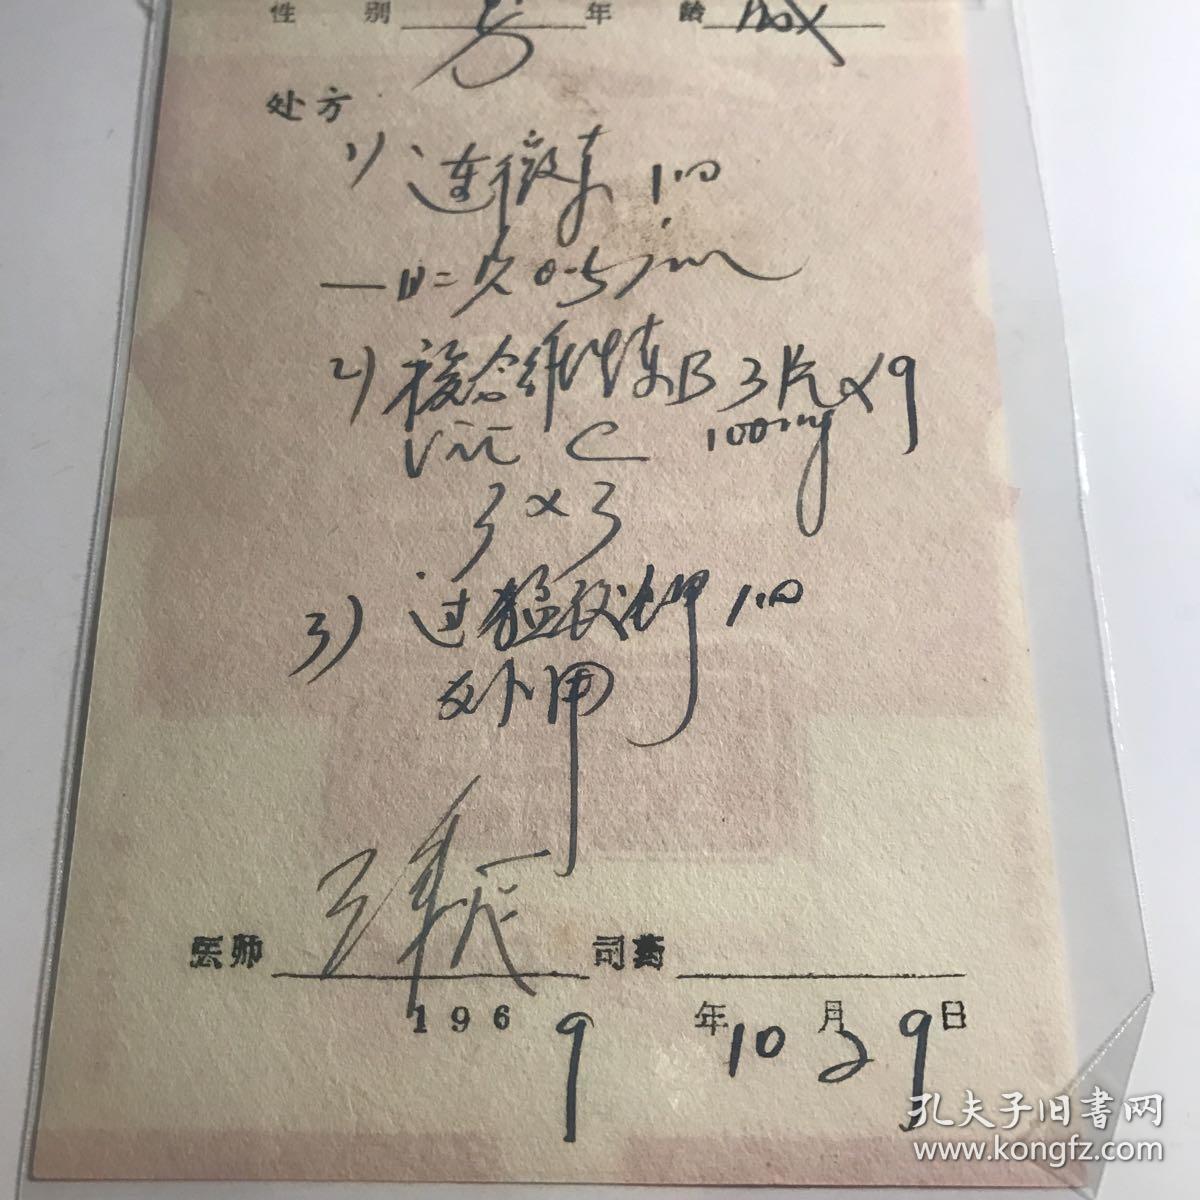 性 别 男 年 龄 成
处方
1) 连霉素 1.0
一日二次 0.5 im
2) 複合维生素B 3片×9
Vit C 100mg
3×3
3) 过猛酸钾 1.0
外用
医师 司药
1969年10月29日
孔夫子旧书网
www.kongfz.com